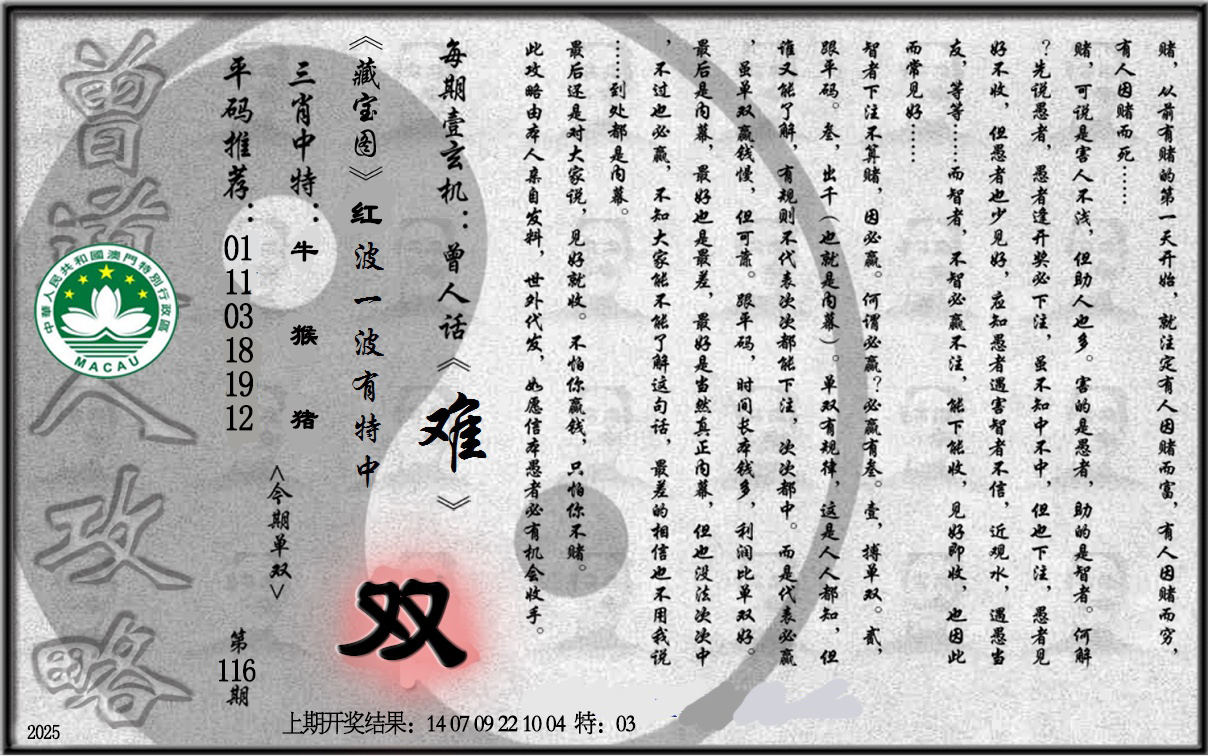 赌，从前有赌的第一天开始，就注定有人因赌而富，有人因赌而穷，
有人因赌而死……
赌，可说是害人不浅，但助人也多。害的是愚者，助的是智者。何解
？先说愚者，愚者逢开奖必下注，虽不知中不中，但也下注，愚者见
好不收，但愚者也少见好，应知愚者遇害智者不信，近观水，遇愚当
友，等等……而智者，不智必赢不注，能下能收，见好即收，也因此
而常见好……
智者下注不算赌，因必赢。何谓必赢？必赢有叁。壹，搏单双。贰，
跟平码。叁，出千（也就是内幕）。单双有规律，这是人人都知，但
谁又能了解，有规则不代表次次都能下注，次次都中。而是代表必赢
，虽单双赢钱慢，但可靠。跟平码，时间长本钱多，利润比单双好。
最后是内幕，最好也是最差，最好是当然真正内幕，但也没法次次中
，不过也必赢，不知大家能不能了解这句话，最差的相信也不用我说
……到处都是内幕。
最后还是对大家说，见好就收。不怕你赢钱，只怕你不赌。
此攻略由本人亲自发料，世外代发，如愿信本愚者必有机会收手。
每期壹玄机：曾人话《难》
《藏宝图》红波一波有特中
双
三肖中特：牛 猴 猪
<今期单双>
平码推荐：01 11 03 18 19 12
第116期
曾道人攻略
中華人民共和國澳門特別行政區
MACAU
上期开奖结果：14 07 09 22 10 04 特：03
2025